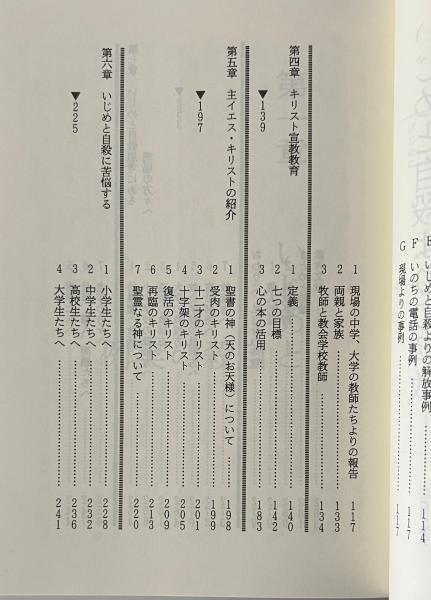 E いじめと自殺よりの解放事例 ……… 114
F いのちの電話の事例 ……… 117
G 現場よりの事例 ……… 117
1 現場の中学、大学の教師たちよりの報告 ……… 117
2 両親と家族 ……… 133
3 牧師と教会学校教師 ……… 134
第四章 キリスト宣教教育 ▼139
1 定義 ……… 140
2 七つの目標 ……… 142
3 心の本の活用 ……… 183
第五章 主イエス・キリストの紹介 ▼197
1 聖書の神(天のお天様)について ……… 198
2 受肉のキリスト ……… 199
3 十二才のキリスト ……… 201
4 十字架のキリスト ……… 205
5 復活のキリスト ……… 209
6 再臨のキリスト ……… 213
7 聖霊なる神について ……… 220
第六章 いじめと自殺に苦悩する ▼225
1 小学生たちへ ……… 228
2 中学生たちへ ……… 232
3 高校生たちへ ……… 236
4 大学生たちへ ……… 241